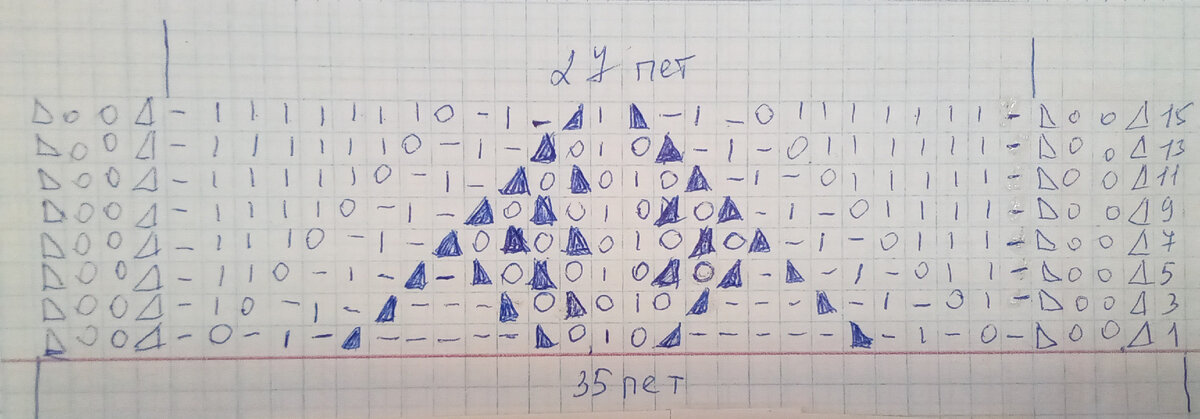 27 пет
15
13
11
9
7
5
3
1
35 пет